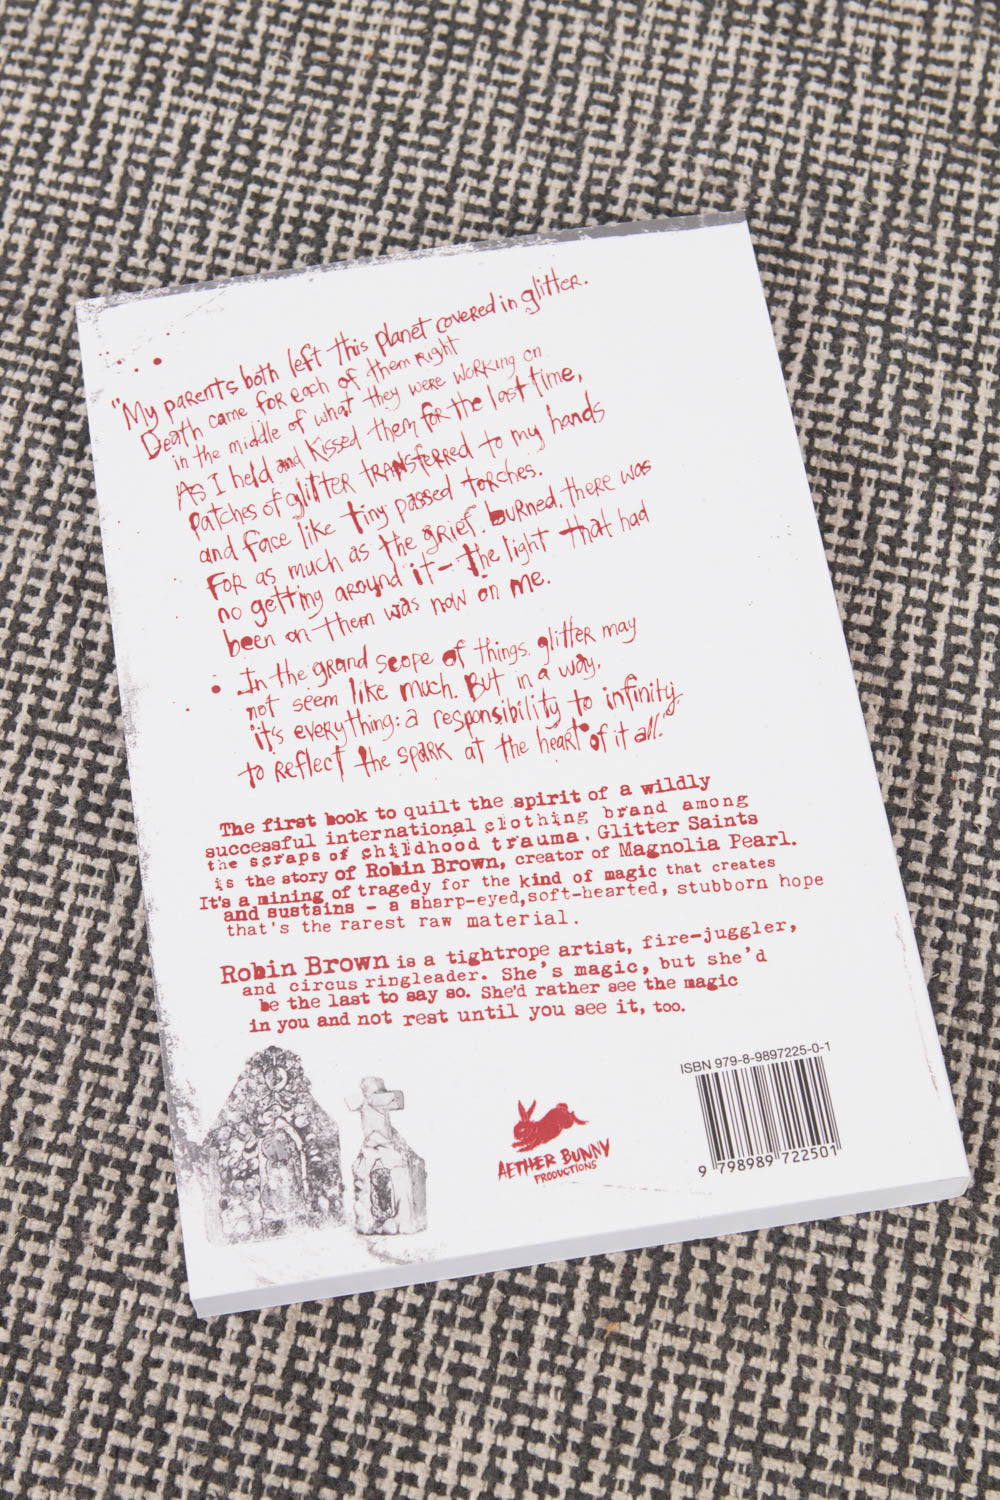 "My parents both left this planet covered in glitter.
Death came for each of them right
in the middle of what they were working on
As I held and kissed them for the last time,
patches of glitter transferred to my hands
and face like tiny passed torches.
For as much as the grief burned, there was
no getting around it - the light that had
been on them was now on me.
In the grand scope of things, glitter may
not seem like much. But in a way,
it's everything: a responsibility to infinity
to reflect the spark at the heart of it all.
The first book to quilt the spirit of a wildly
successful international clothing brand among
the scraps of childhood trauma, Glitter Saints
is the story of Robin Brown, creator of Magnolia Pearl.
It's a mining of tragedy for the kind of magic that creates
and sustains - a sharp-eyed, soft-hearted, stubborn hope
that's the rarest raw material.
Robin Brown is a tightrope artist, fire-juggler,
and circus ringleader. She's magic, but she'd
be the last to say so. She'd rather see the magic
in you and not rest until you see it, too.
ISBN 979-8-9897225-0-1
9 798989 722501
AETHER BUNNY
PRODUCTIONS